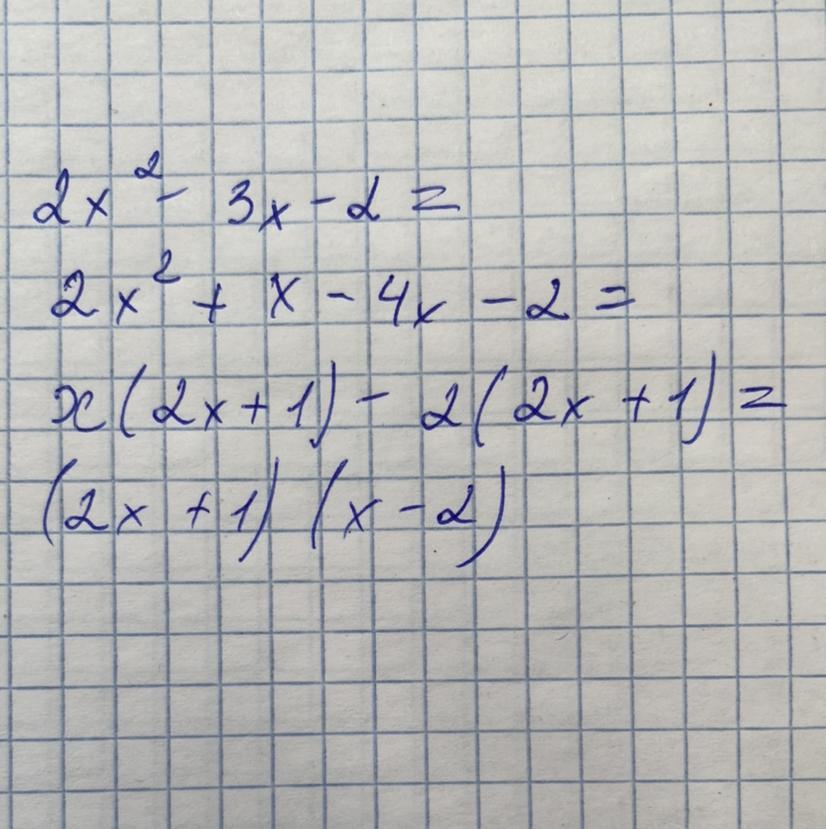 2x² - 3x - 2 =
2x² + x - 4x - 2 =
x(2x + 1) - 2(2x + 1) =
(2x + 1) (x - 2)